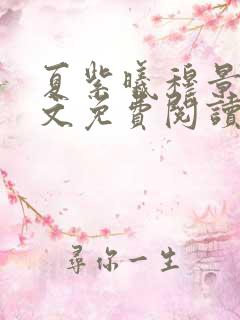 夏紫曦穆景
文免費閱讀
尋你一生